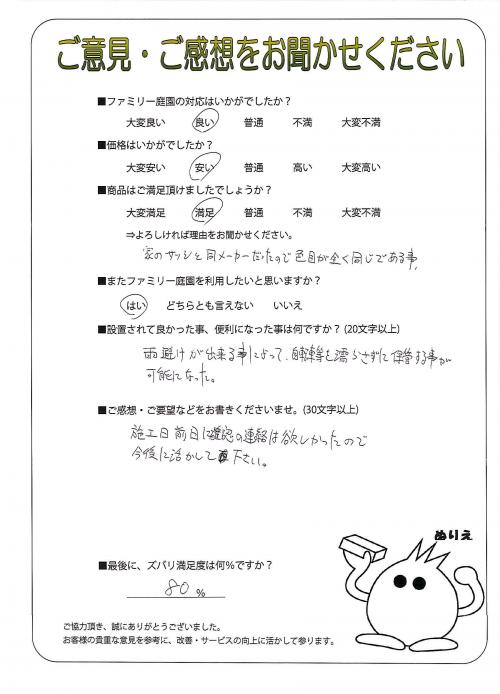 ご意見・ご感想をお聞かせください
■ファミリー庭園の対応はいかがでしたか？
大変良い 良い 普通 不満 大変不満
■価格はいかがでしたか？
大変安い 安い 普通 高い 大変高い
■商品はご満足頂けましたでしょうか？
大変満足 満足 普通 不満 大変不満
⇒よろしければ理由をお聞かせください。
家のサッシと同メーカーだったので色目が全く同じである事。
■またファミリー庭園を利用したいと思いますか？
はい どちらとも言えない いいえ
■設置されて良かった事、便利になった事は何ですか？(20文字以上)
雨避けが出来る事によって、自転車等を濡らさずに保管する事が
可能になった。
■ご感想・ご要望などをお書きくださいませ。(30文字以上)
施工日前日に確認の連絡は欲しかったので
今後に活かして下さい。
ぬりえ
■最後に、ズバリ満足度は何％ですか？
80 %
ご協力頂き、誠にありがとうございました。
お客様の貴重な意見を参考に、改善・サービスの向上に活かして参ります。